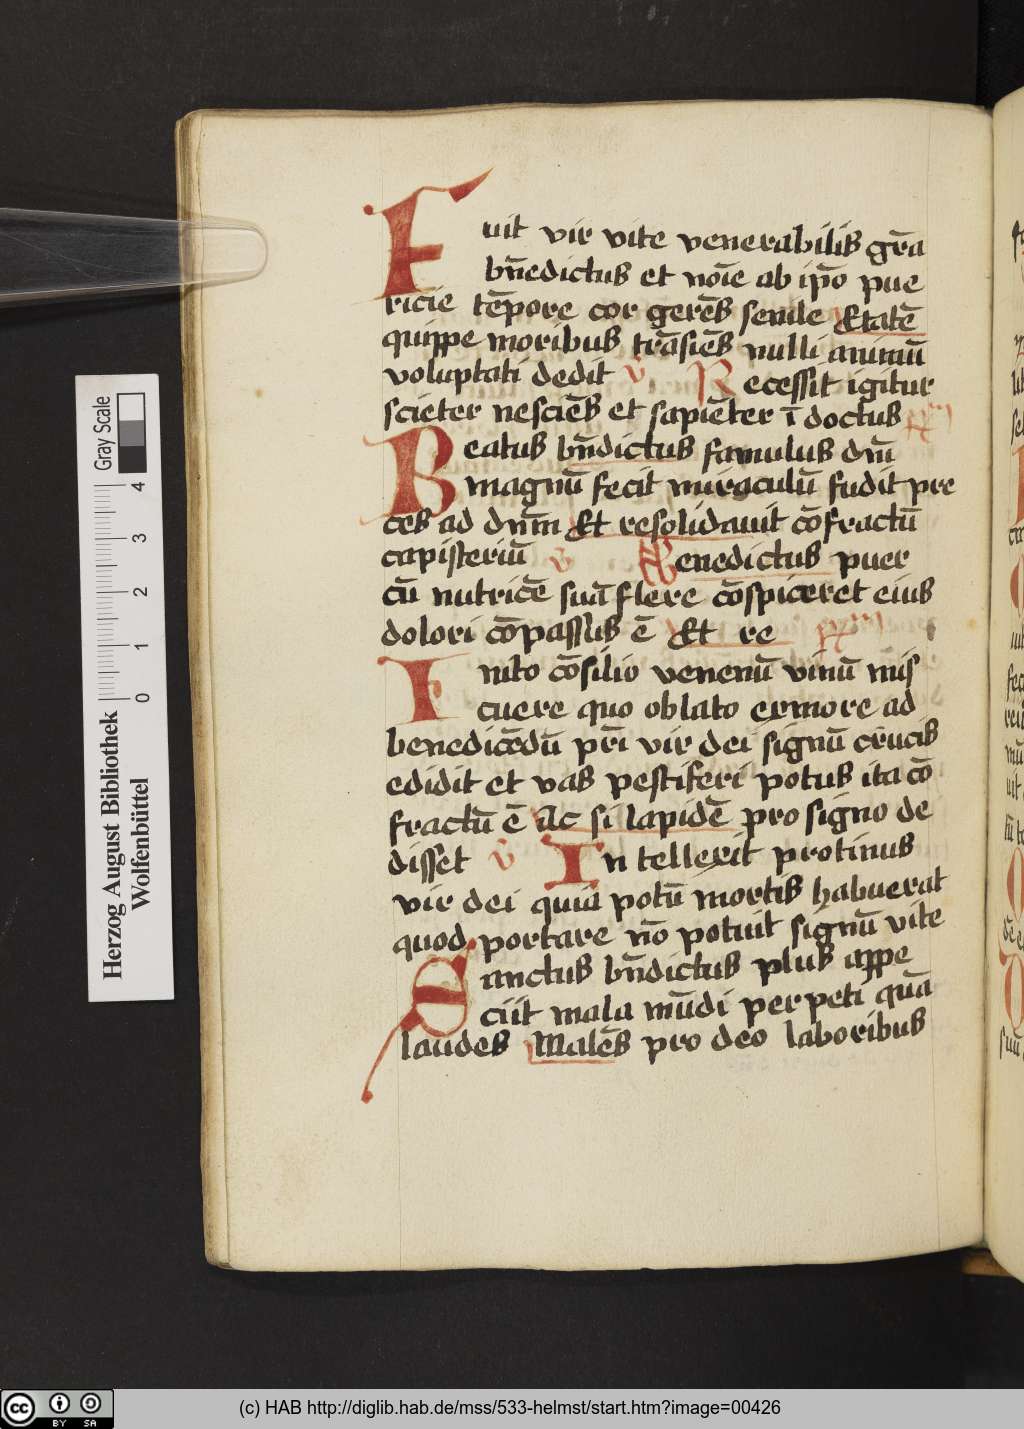 Fuit vir vite venerabilis gr̄a
bn̄edictus et noīe ab ip̄o pue
ricie tēpore cor gerēs senile Etatē
quippe moribus trāsiēs nulli animū
voluptati dedit v̄ Recessit igitur
sciēter nesciēs et sapiēter ī doctus Rm
Beatus bn̄dictus famulus dn̄i
magnū fecit miraculū fudit pre
ces ad dn̄m Et resolidauit cōfractū
capisteriū v̄ Benedictus puer
cū nutricē suā flere cōspiceret eius
dolori cōpassus ē Et re Rm
Inito cōsilio venenū vinū mis
cuere quo oblato exmore ad
benedicēdū pr̄i vir dei signū crucis
edidit et vas pestiferi potus ita cō
fractū ē Ac si lapidē pro signo de
disset v̄ Intellexit protinus
vir dei quia potū mortis habuerat
quod portare nō potuit signū vite
Sanctus bn̄dictus plus appe
ciit mala mūdi perpeti quā
laudes Malēs pro deo laboribus
Gray Scale
4
3
2
1
0
Herzog August Bibliothek
Wolfenbüttel
(c) HAB http://diglib.hab.de/mss/533-helmst/start.htm?image=00426
cc BY SA